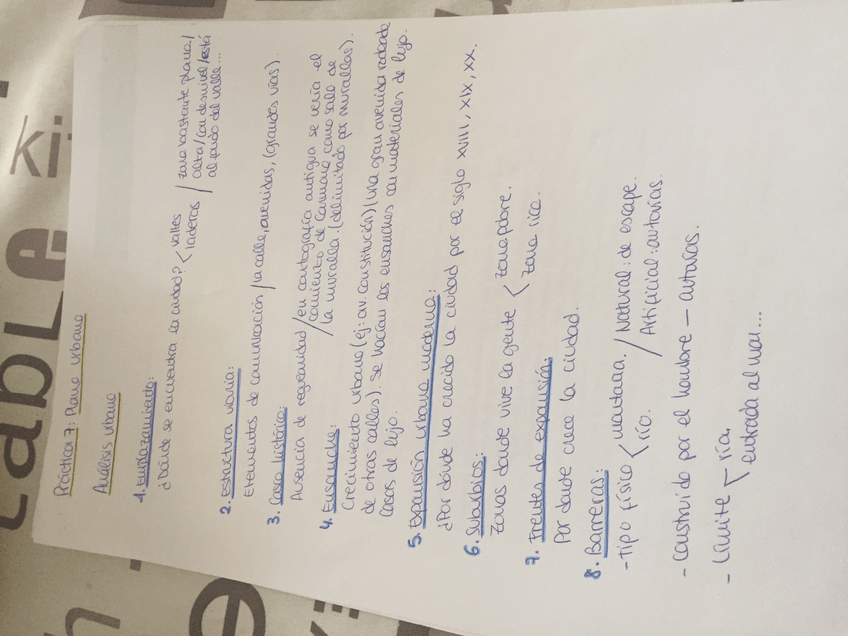 Práctica 7: Plano urbano
Análisis urbano
1. Emplazamiento:
¿Dónde se encuentra la ciudad? < valles / laderas / zona bastante plana/
alta/con desnivel/está
al fondo del valle...
2. Estructura viaria:
Elementos de comunicación / la calle, avenidas, (grandes vías).
3. Casco histórico:
Ausencia de regularidad / en cartografía antigua se vería el
4. Ensanche:
la muralla. (delimitado por murallas).
Crecimiento urbano (ej: av. Constitución) (una gran avenida rodeada
de otras calles). Se hacían los ensanches con materiales de lujo.
Casas de lujo.
5. Expansión urbana moderna:
¿Por dónde ha crecido la ciudad por el siglo XVIII, XIX, XX.
6. Suburbios:
Zonas donde vive la gente < zona pobre.
zona rica.
7. Frentes de expansión:
Por donde crece la ciudad.
8. Barreras:
- Tipo físico < montaña. / Natural: de escape.
río. / Artificial: autovías.
- Construido por el hombre — autovías.
- Límite ┌ ría,
entrada al mar...
kit
table